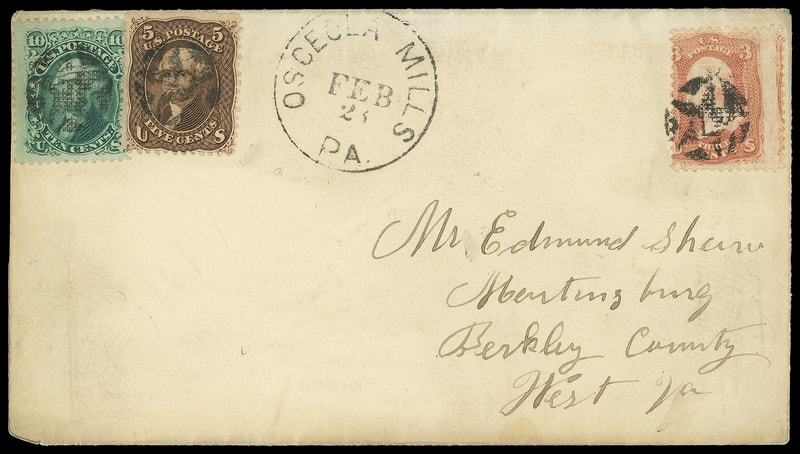 10 10
U.S. POSTAGE
TEN CENTS
U S
5 5
U.S. POSTAGE
FIVE CENTS
U S
OSCEOLA MILLS
FEB
23
PA.
3 3
U.S. POSTAGE
S
Mr Edmund Shaw
Mentinsburg
Berkley County
West Va